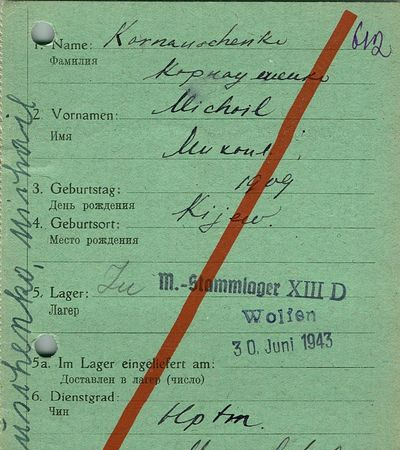 612
1. Name: Kornauschenko
Фамилия
Корнаушенко
2. Vornamen: Michail
Имя
Михаил
3. Geburtstag: 1909
День рождения
4. Geburtsort: Kijew.
Место рождения
5. Lager: In M.-Stammlager XIII D
Лагерь
Wolfen
30. Juni 1943
5a. Im Lager eingeliefert am:
Доставлен в лагерь (число)
6. Dienstgrad: Hptm.
Чин